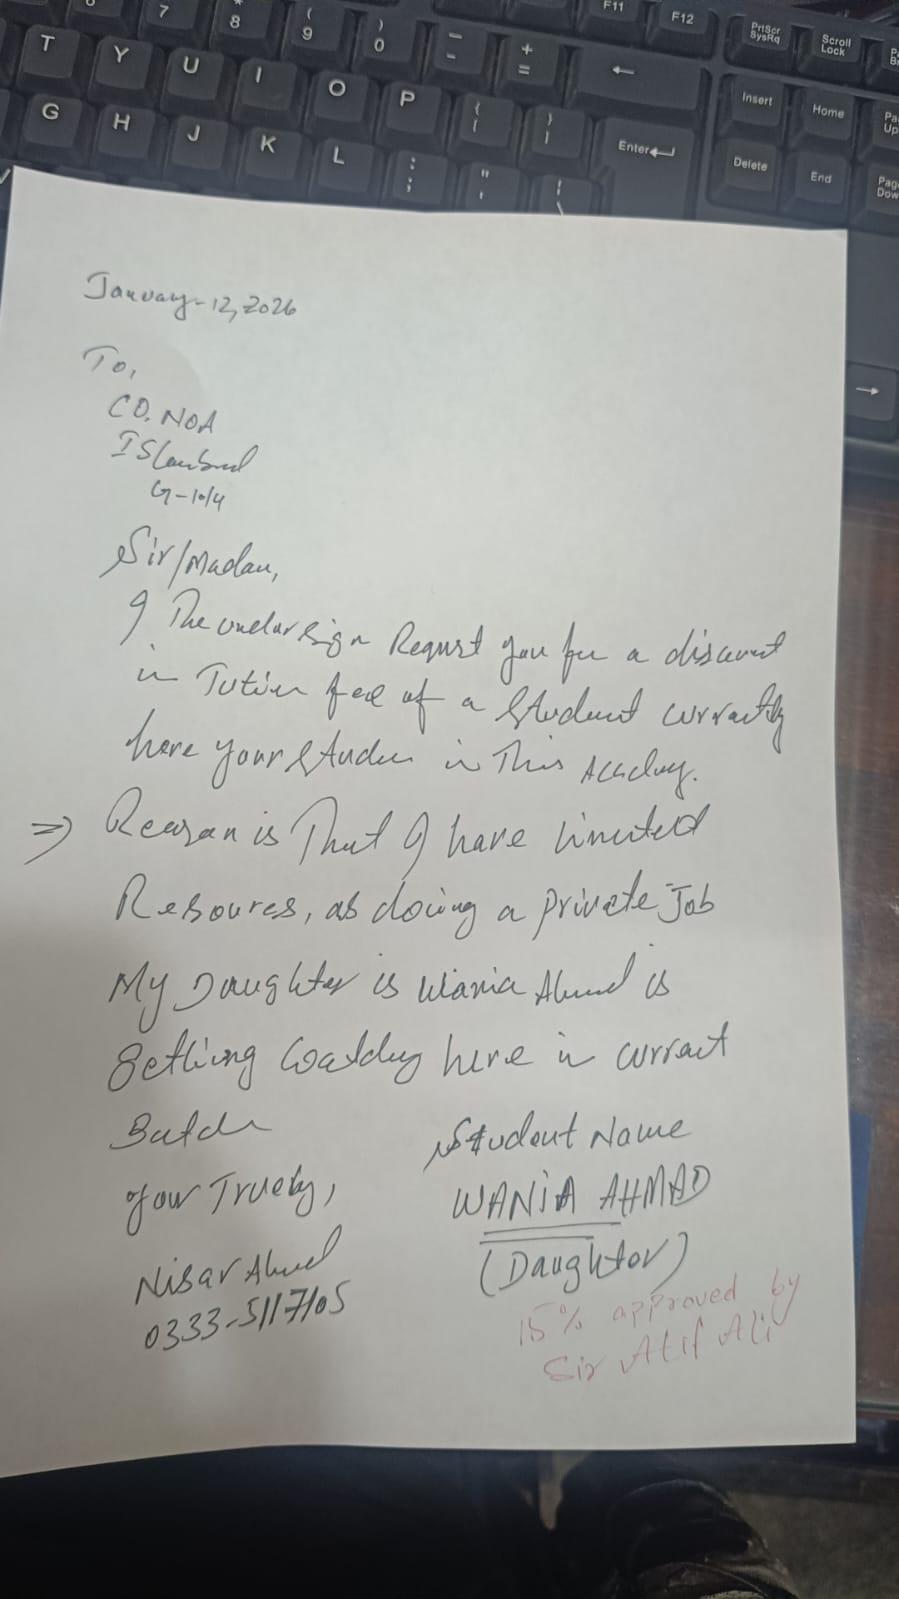 7 8 ( 9 ) 0 — - + = F11 F12 PrtScr SysRq Scroll Lock
T Y U I O P { [ } ] Insert Home
G H J K L : ; " ' Enter Delete End
January-12,2026
To,
CO. NOA
ISlambad
G-10/4
Sir/Madam,
I The undersign Request you for a discount
in Tution fee of a Student currently
here your Student in This Academy.
⇒ Reason is That I have limited
Resources, as doing a private Job
My Daughter is Wania Ahmad is
Getting here in current
Batch
your Truely,
Nisar Ahmed
0333-5117105
Student Name
WANIA AHMAD
(Daughter)
15% approved by
Sir Atif Ali